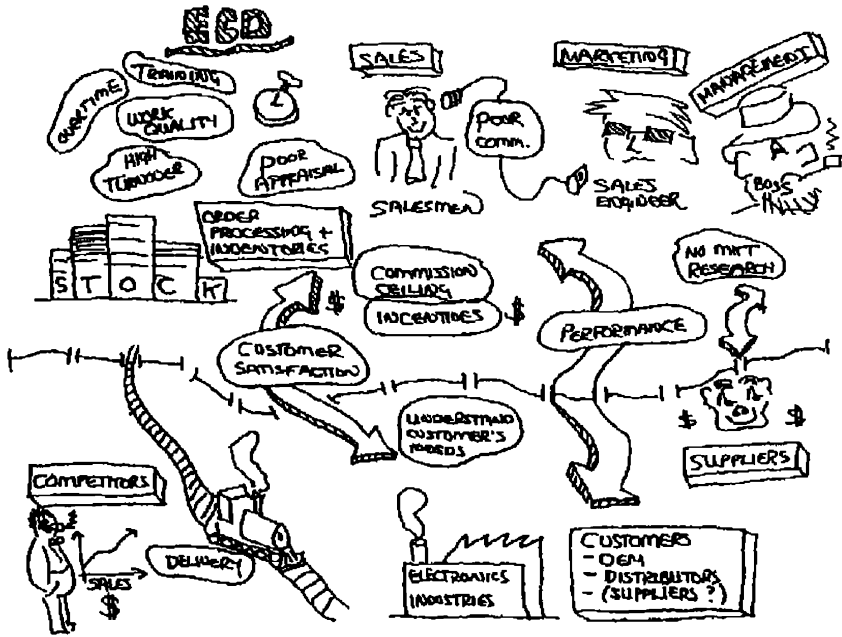 ECD
TRAINING
OVERTIME
WORK
QUALITY
HIGH
TURNOVER
POOR
APPRAISAL
SALES
SALESMEN
POOR
COMM.
MARKETING
SALES
ENGINEER
MANAGEMENT
A
BOSS
ORDER
PROCESSING +
INVENTORIES
STOCK
COMMISSION
CEILING
INCENTIVES
$
$
NO MKT
RESEARCH
PERFORMANCE
CUSTOMER
SATISFACTION
UNDERSTAND
CUSTOMER'S
NEEDS
$
$
SUPPLIERS
COMPETITORS
SALES
$
DELIVERY
ELECTRONICS
INDUSTRIES
CUSTOMERS
- OEM
- DISTRIBUTORS
- (SUPPLIERS ?)